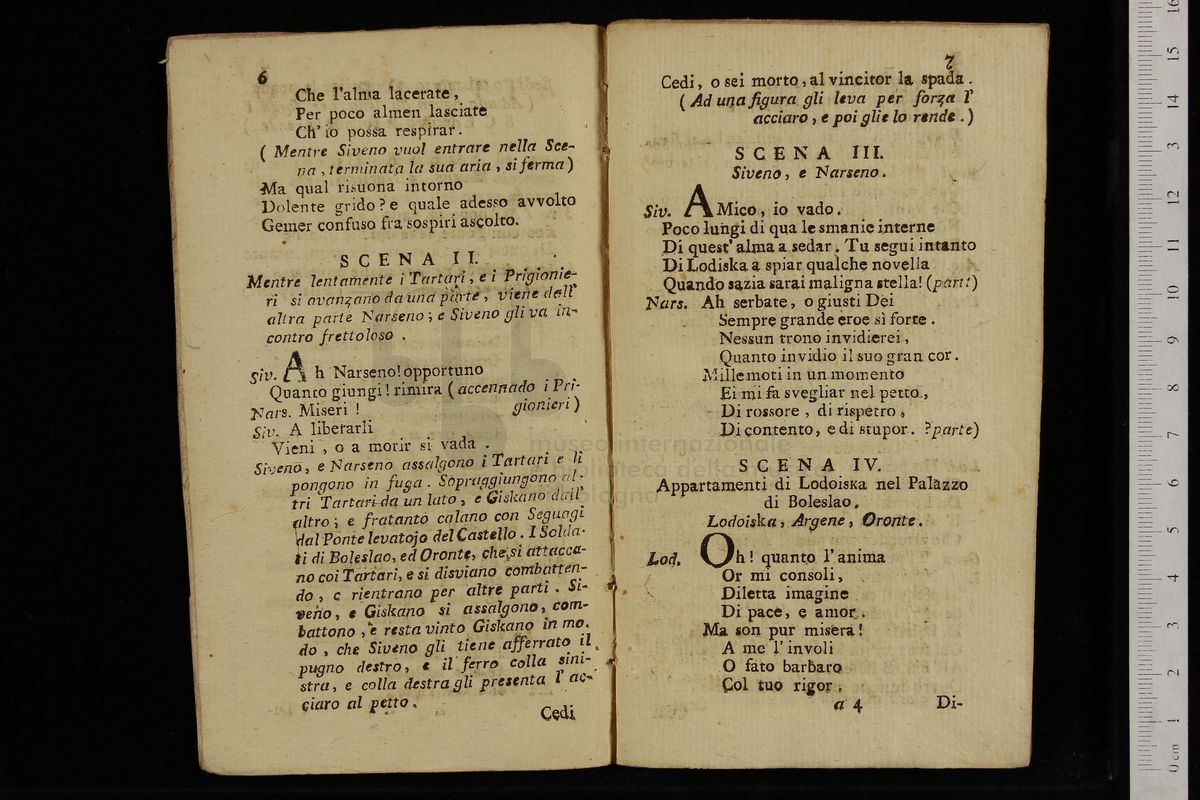 6
Che l'alma lacerate,
Per poco almen lasciate
Ch' io possa respirar.
( Mentre Siveno vuol entrare nella Sce-
na, terminata la sua aria, si ferma )
Ma qual risuona intorno
Dolente grido? e quale adesso avvolto
Gemer confuso fra sospiri ascolto.
SCENA II.
Mentre lentamente i Tartari, e i Prigionie-
ri si avanzano da una parte, viene dell'
altra parte Narseno; e Siveno gli va in-
contro frettoloso.
Siv. Ah Narseno! opportuno
Quanto giungi! rimira ( accennado i Pri-
Nars. Miseri ! gionieri )
Siv. A liberarli
Vieni, o a morir si vada.
Siveno, e Narseno assalgono i Tartari e li
pongono in fuga. Sopraggiungono al-
tri Tartari da un lato, e Giskano dall'
altro; e fratanto calano con Seguagi
dal Ponte levatojo del Castello. I Solda-
ti di Boleslao, ed Oronte, che si attacca-
no coi Tartari, e si disviano combatten-
do, e rientrano per altre parti. Si-
veno, e Giskano si assalgono, com-
battono, e resta vinto Giskano in mo.
do, che Siveno gli tiene afferrato il
pugno destro, e il ferro colla sini-
stra, e colla destra gli presenta l' ac-
ciaro al petto.
Cedi
7
Cedi, o sei morto, al vincitor la spada.
( Ad una figura gli leva per forza l'
acciaro, e poi glie lo rende. )
SCENA III.
Siveno, e Narseno.
Siv. AMico, io vado.
Poco lungi di qua le smanie interne
Di quest' alma a sedar. Tu segui intanto
Di Lodiska a spiar qualche novella
Quando sazia sarai maligna stella! (parte)
Nars. Ah serbate, o giusti Dei
Sempre grande eroe sì forte.
Nessun trono invidierei,
Quanto invidio il suo gran cor.
Mille moti in un momento
Ei mi fa svegliar nel petto,
Di rossore, di rispetro,
Di contento, e di stupor. ?parte)
SCENA IV.
Appartamenti di Lodoiska nel Palazzo
di Boleslao.
Lodoiska, Argene, Oronte.
Lod. Oh! quanto l' anima
Or mi consoli,
Diletta imagine
Di pace, e amor.
Ma son pur misera!
A me l' involi
O fato barbaro
Col tuo rigor.
a 4 Di-
museo internazionale
e biblioteca della
di bologna
0 cm 1 2 3 4 5 6 7 8 9 10 11 12 13 14 15 16